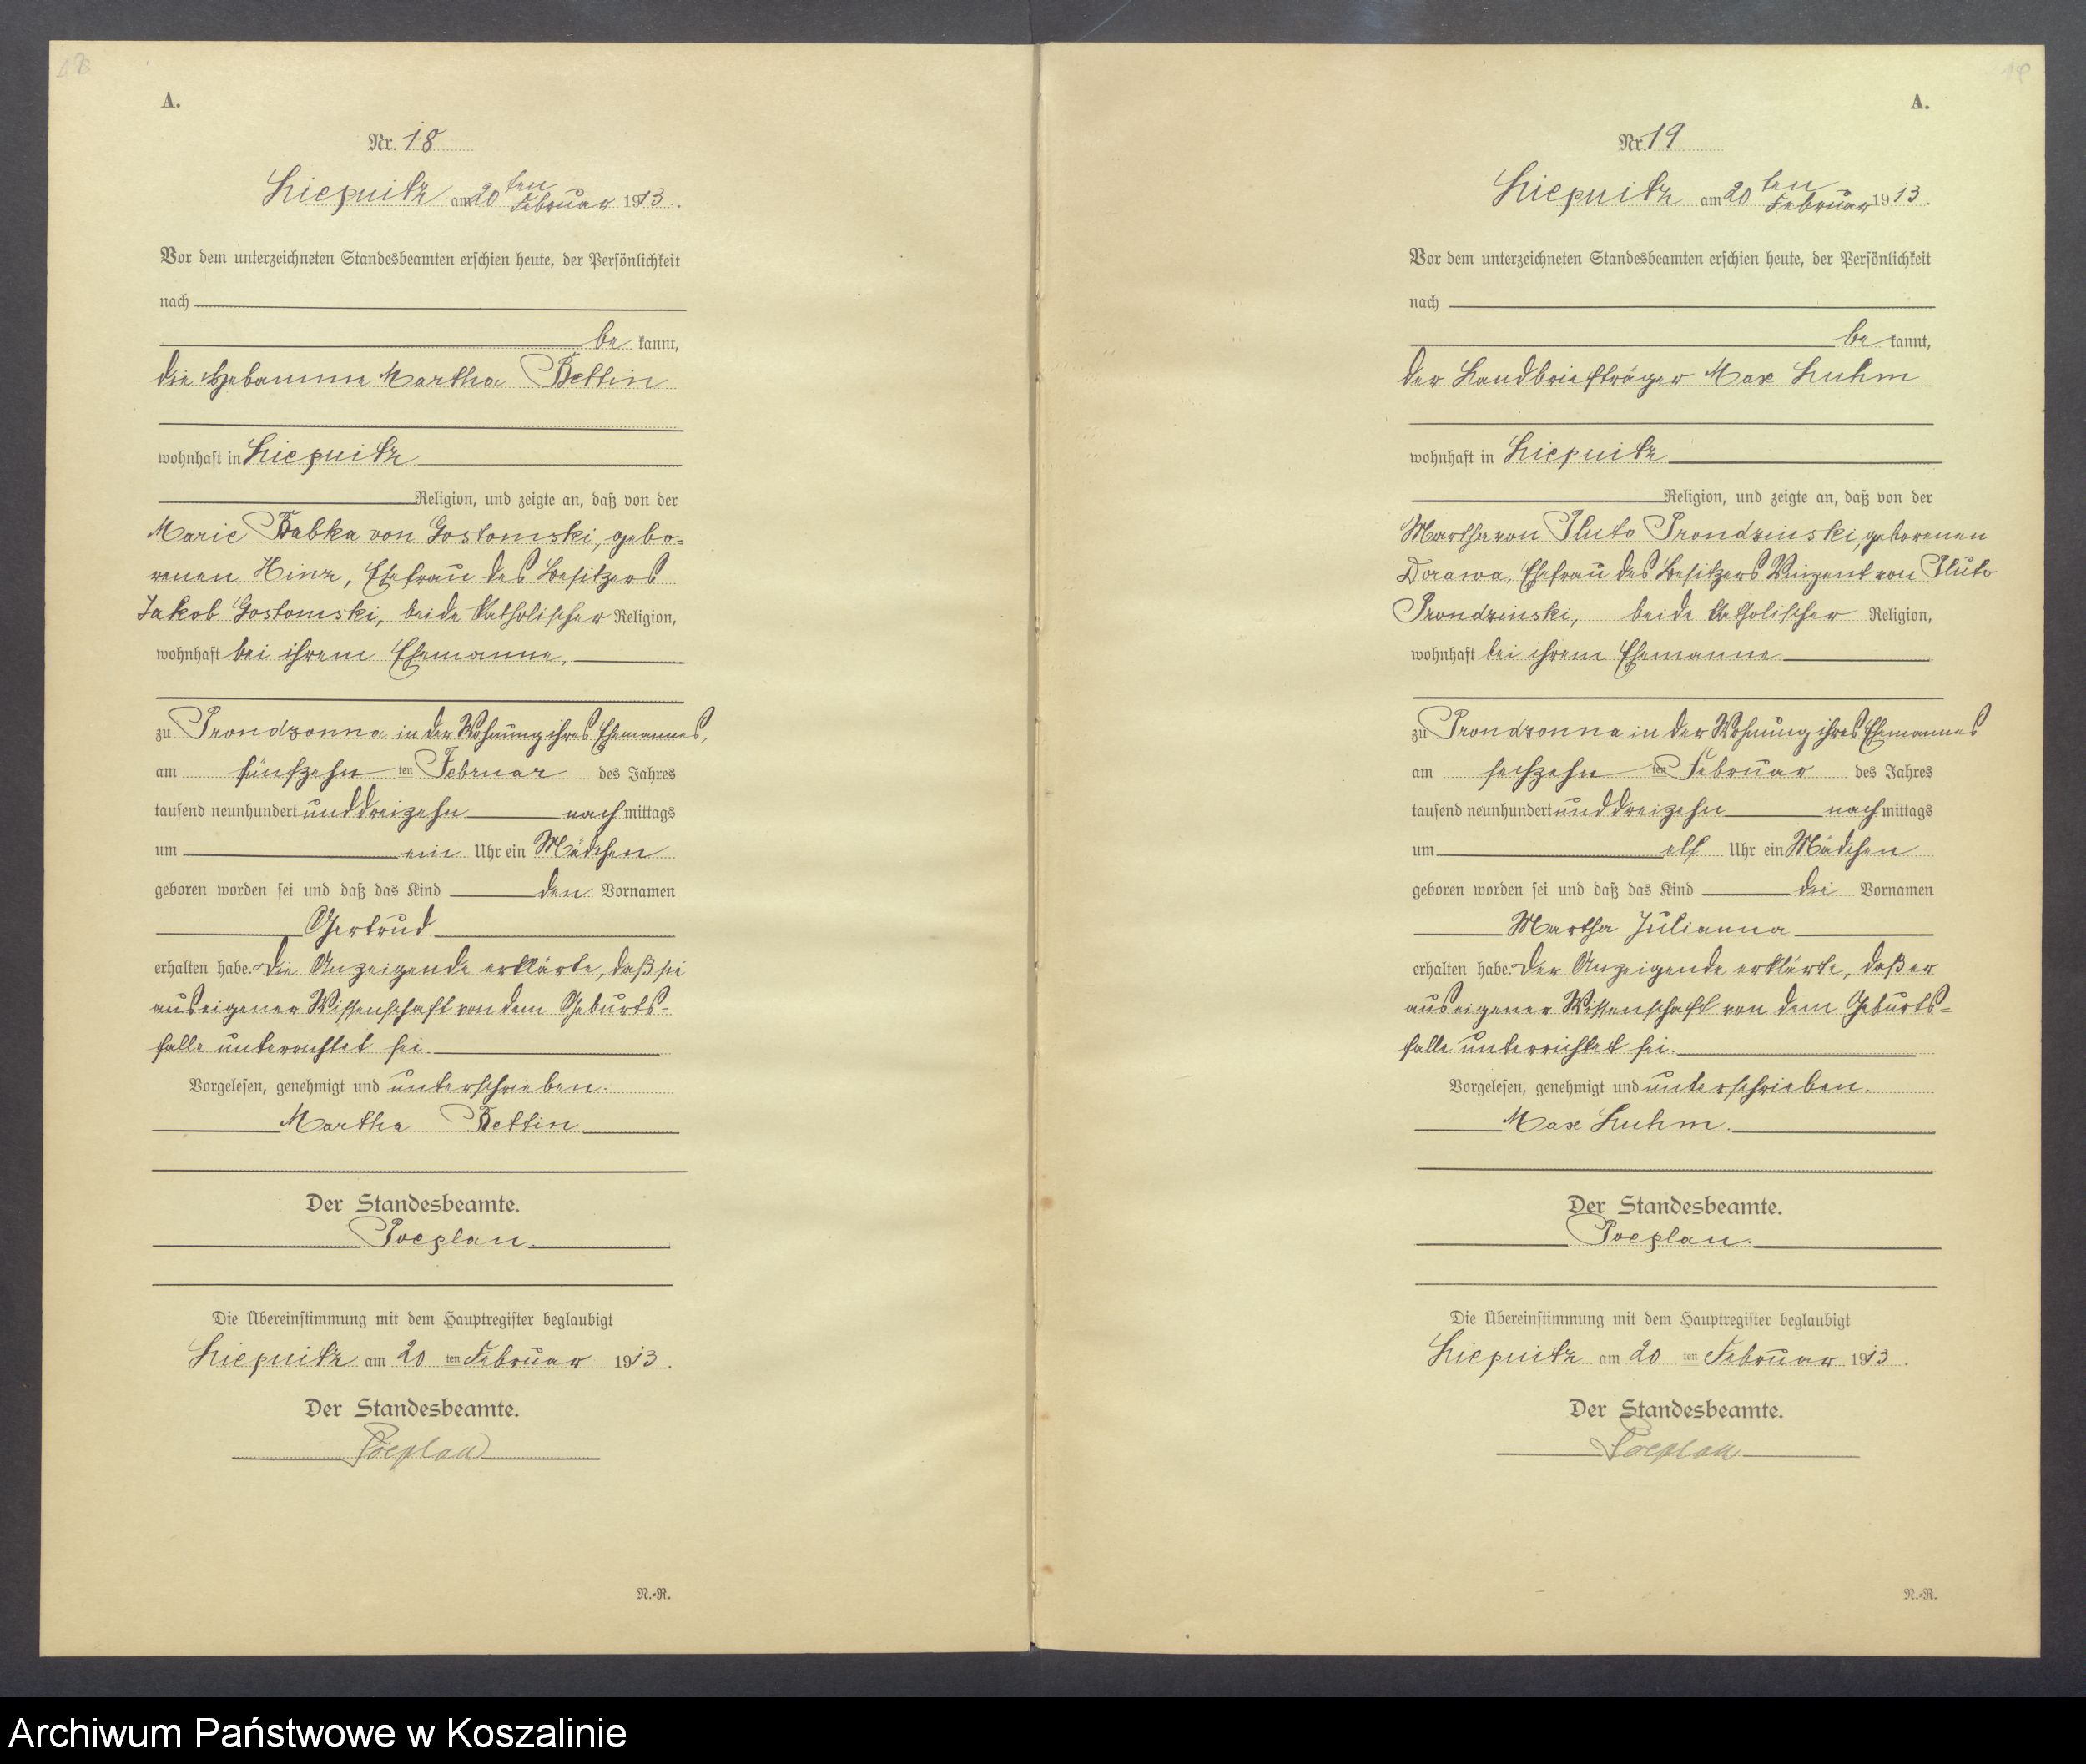 A.
Nr. 18
Liepnitz am 20 ten Februar 1913.
Vor dem unterzeichneten Standesbeamten erschien heute, der Persönlichkeit
nach
be kannt,
die Hebamme Martha Bettin
wohnhaft in Liepnitz
Religion, und zeigte an, daß von der
Marie Babka von Gostomski, gebo-
renen Hinz, Ehefrau des Besitzers
Jakob Gostomski, beide katholischer Religion,
wohnhaft bei ihrem Ehemanne,
zu Prondzonna in der Wohnung ihres Ehemannes,
am fünfzehn ten Februar des Jahres
tausend neunhundert und dreizehn nach mittags
um ein Uhr ein Mädchen
geboren worden sei und daß das Kind den Vornamen
Gertrud
erhalten habe. Die Anzeigende erklärte, daß sie
aus eigener Wissenschaft von dem Geburts-
falle unterrichtet sei.
Vorgelesen, genehmigt und unterschrieben.
Martha Bettin
Der Standesbeamte.
Poeplau.
Die Übereinstimmung mit dem Hauptregister beglaubigt
Liepnitz am 20 ten Februar 1913.
Der Standesbeamte.
Poeplau
N.-R.
A.
Nr. 19
Liepnitz am 20 ten Februar 1913.
Vor dem unterzeichneten Standesbeamten erschien heute, der Persönlichkeit
nach
be kannt,
der Landbriefträger Max Luhm
wohnhaft in Liepnitz
Religion, und zeigte an, daß von der
Martha von Pluto Prondzinski, geborenen
Dorawa, Ehefrau des Besitzers Vinzent von Pluto
Prondzinski, beide katholischer Religion,
wohnhaft bei ihrem Ehemanne
zu Prondzonna in der Wohnung ihres Ehemannes
am sechzehn ten Februar des Jahres
tausend neunhundert und dreizehn nach mittags
um elf Uhr ein Mädchen
geboren worden sei und daß das Kind die Vornamen
Martha Julianna
erhalten habe. Der Anzeigende erklärte, daß er
aus eigener Wissenschaft von dem Geburts-
falle unterrichtet sei.
Vorgelesen, genehmigt und unterschrieben.
Max Luhm.
Der Standesbeamte.
Poeplau.
Die Übereinstimmung mit dem Hauptregister beglaubigt
Liepnitz am 20 ten Februar 1913.
Der Standesbeamte.
Poeplau
N.-R.
Archiwum Państwowe w Koszalinie